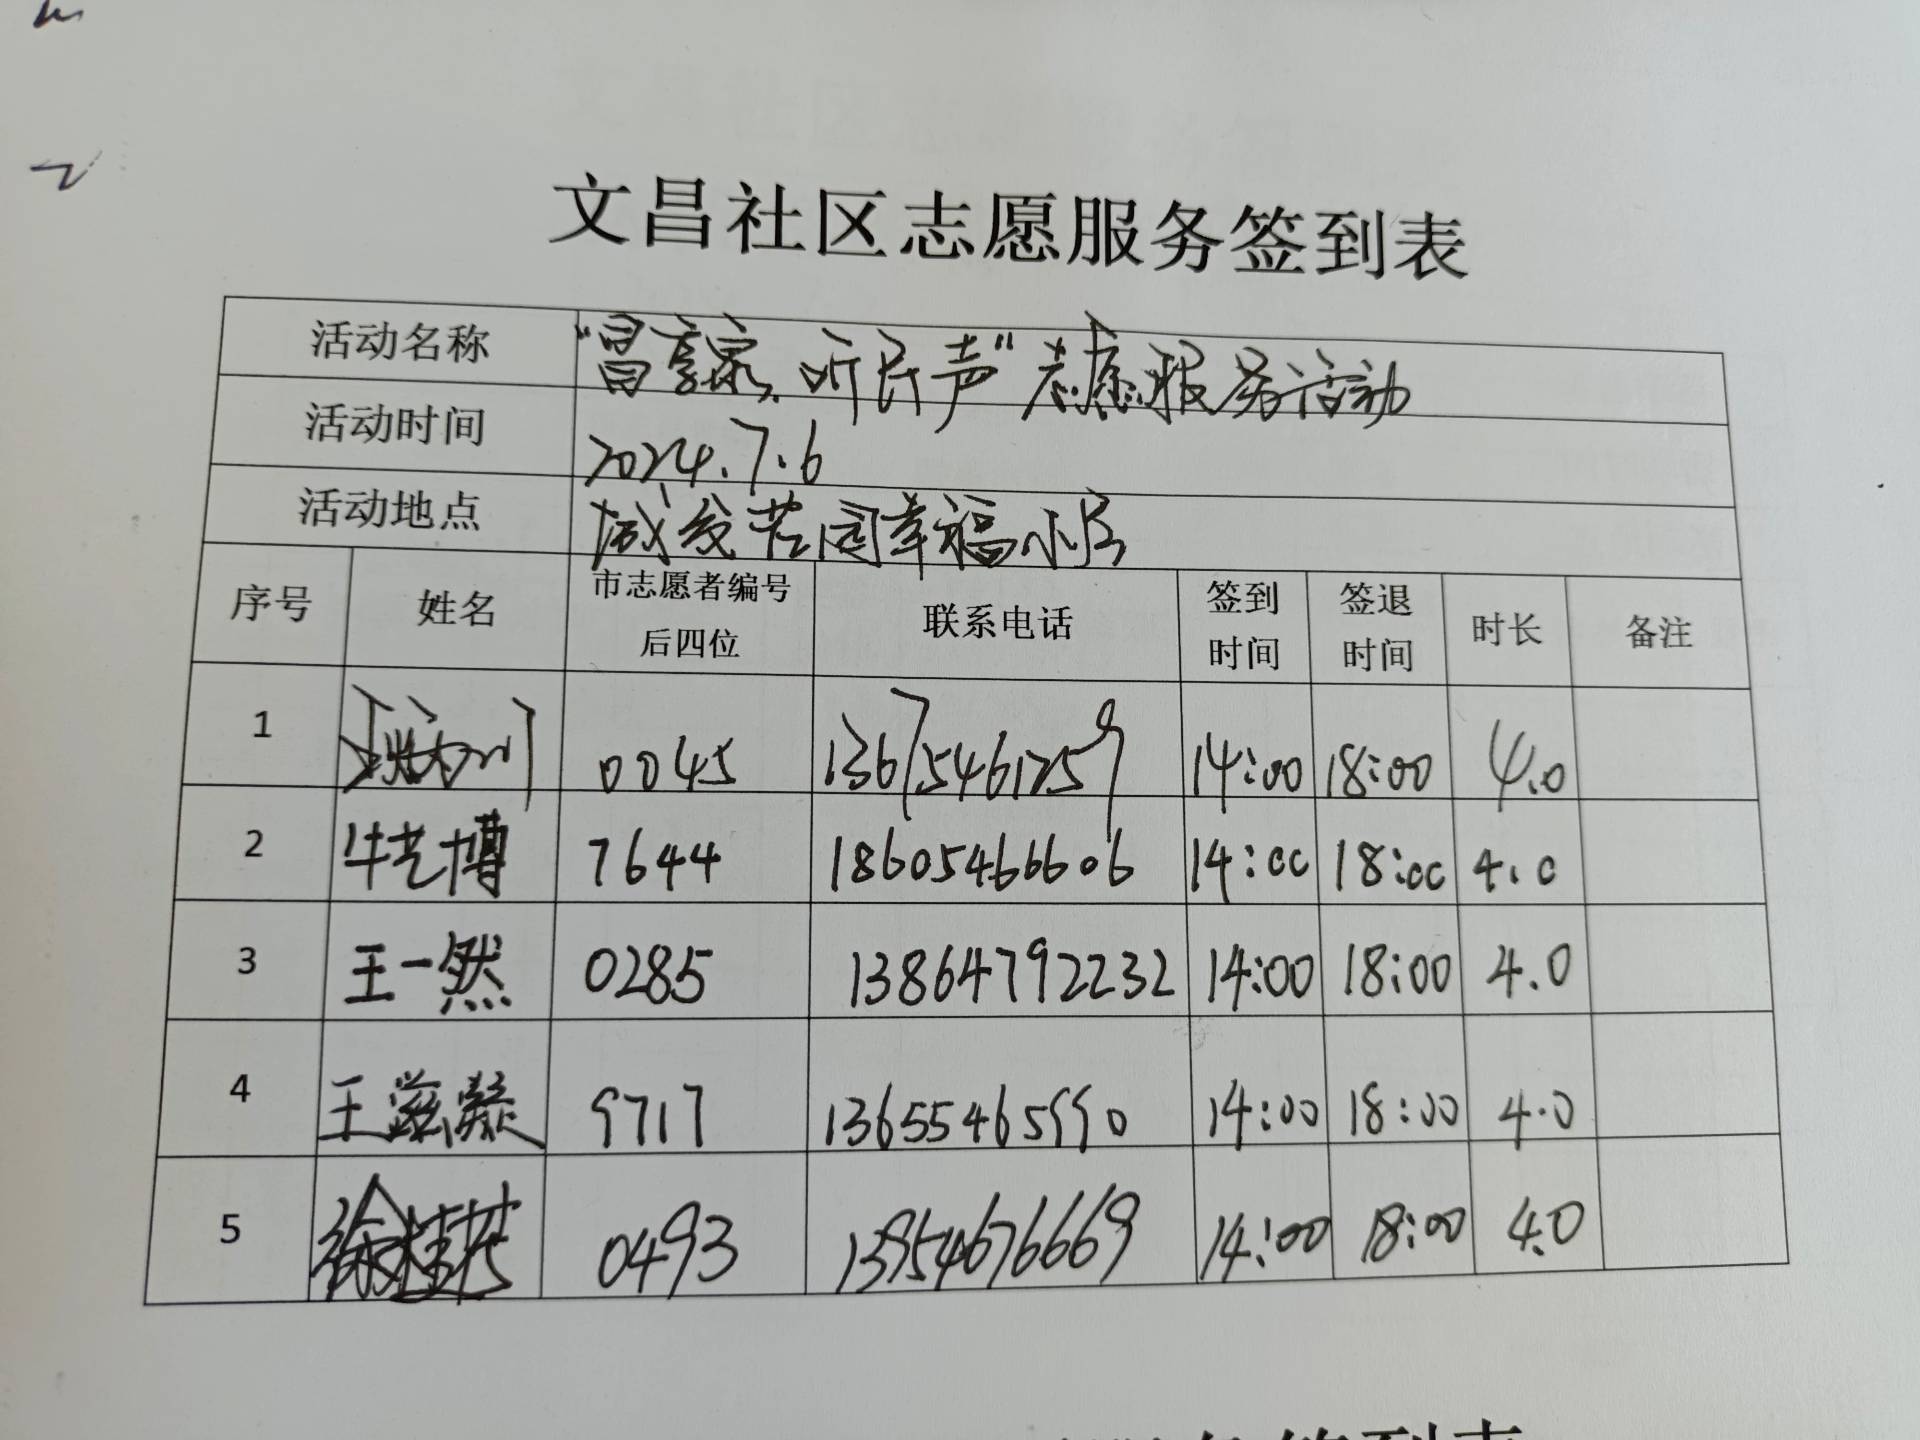 文昌社区志愿服务签到表
活动名称 "昌享家,听民声"志愿服务活动
活动时间 2024.7.6
活动地点 城发花园幸福小区
序号 姓名 市志愿者编号后四位 联系电话 签到时间 签退时间 时长 备注
1 0045 13675461759 14:00 18:00 4.0
2 牛艺博 7644 18605466606 14:00 18:00 4.0
3 王一然 0285 13864792232 14:00 18:00 4.0
4 王滋凝 9717 13655465990 14:00 18:00 4.0
5 徐桂芹 0493 13954676669 14:00 18:00 4.0